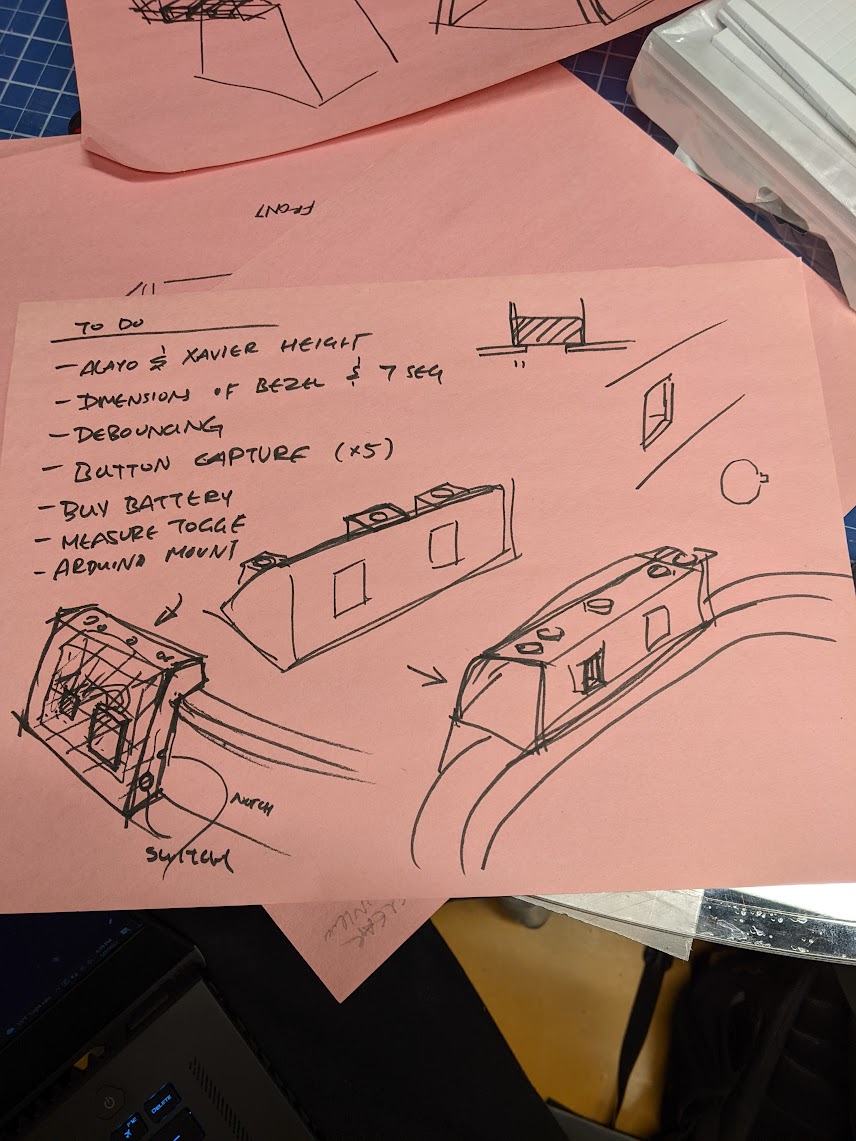 FRONT
TO DO
- ALAYO & XAVIER HEIGHT
- DIMENSIONS OF BEZEL & 7 SEG
- DEBOUNCING
- BUTTON CAPTURE (x5)
- BUY BATTERY
- MEASURE TOGGE
- ARDUINO MOUNT
NOTCH
SWITCH
DELETE